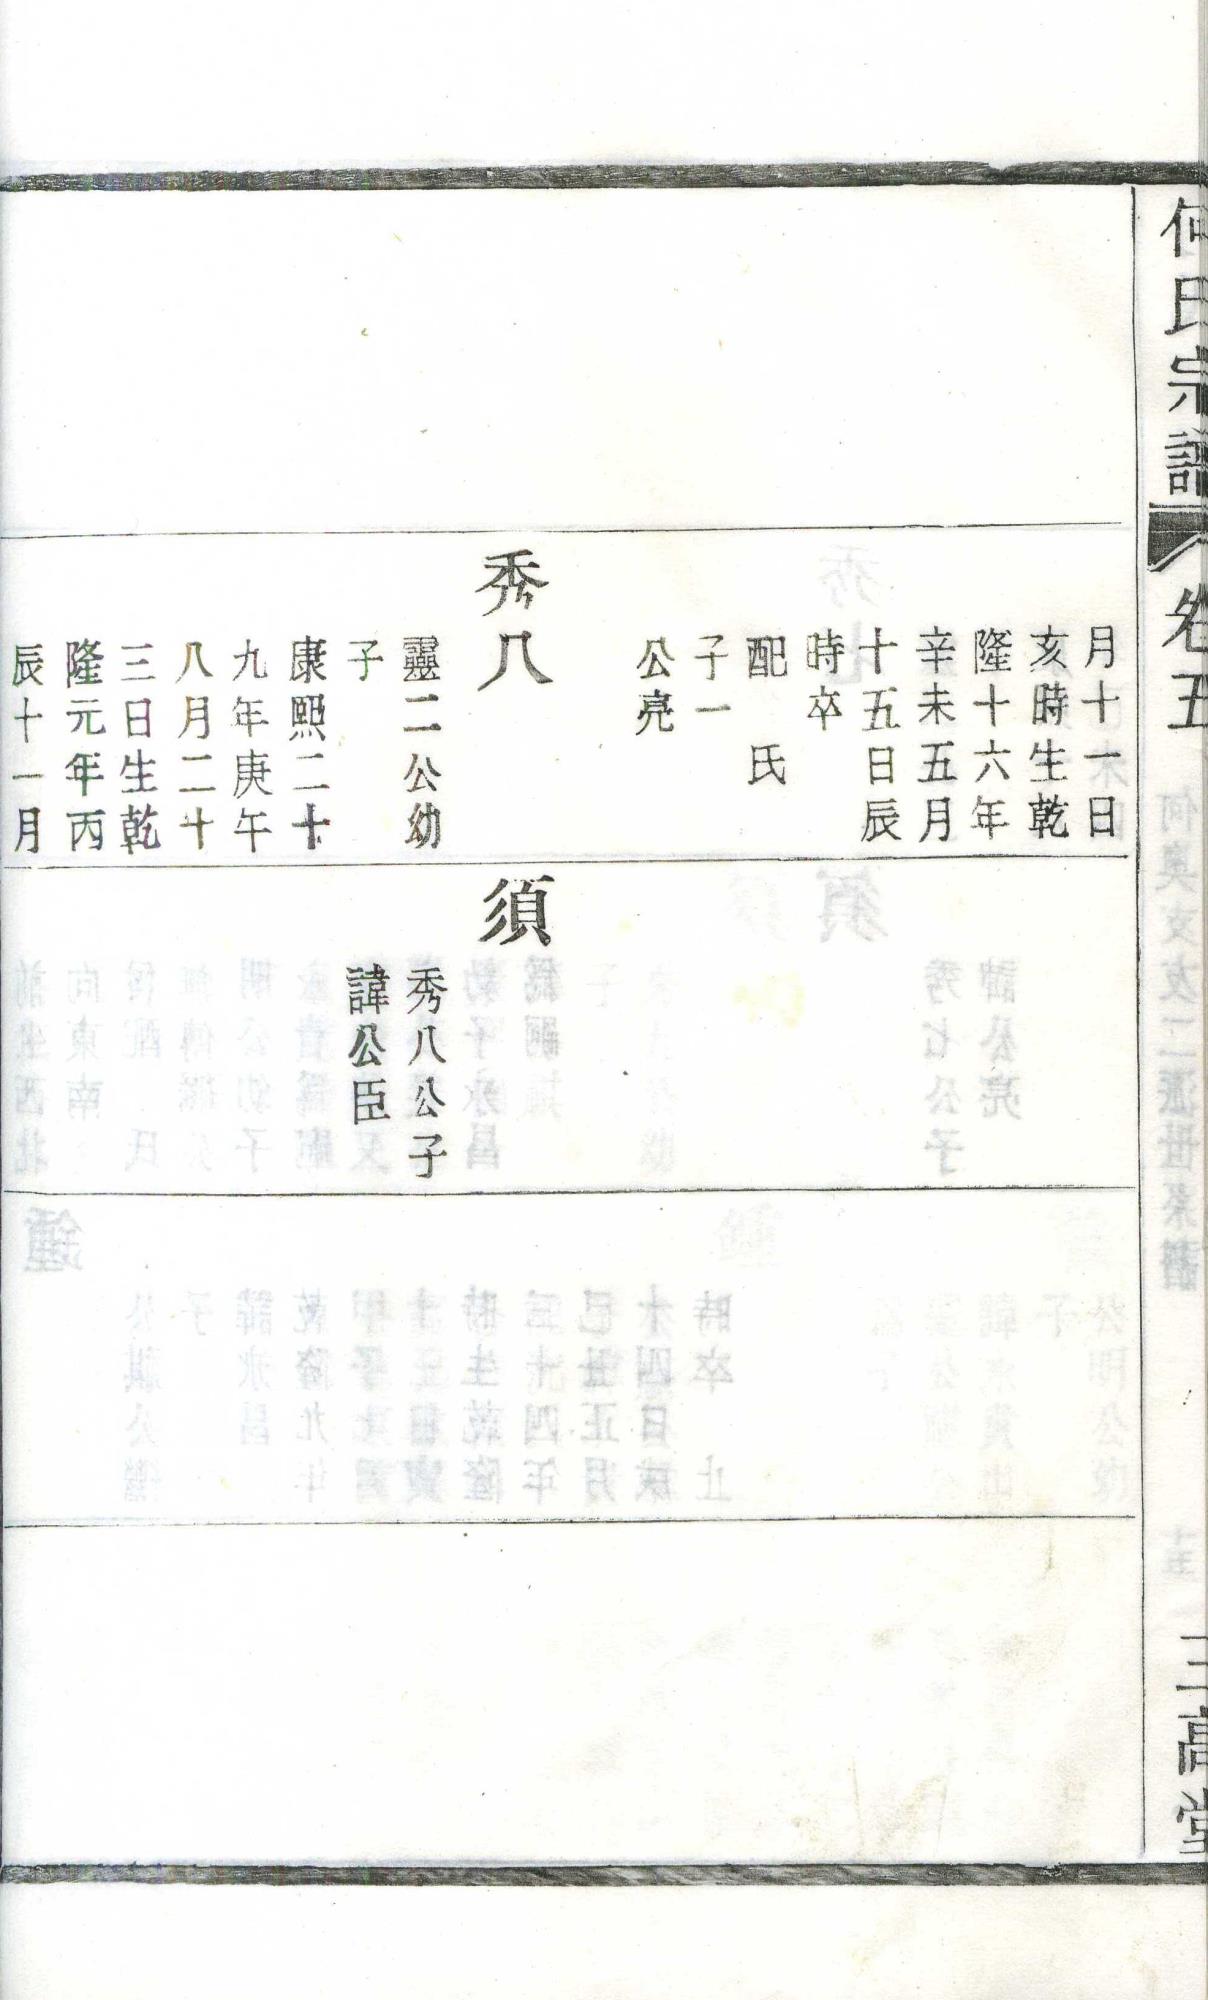 何氏宗譜
卷五
三高堂
月十一日
亥時生乾
隆十六年
辛未五月
十五日辰
時卒
配　氏
子一
公亮
秀八
靈二公幼
子
康熙二十
九年庚午
八月二十
三日生乾
隆元年丙
辰十一月
須
秀八公子
諱公臣